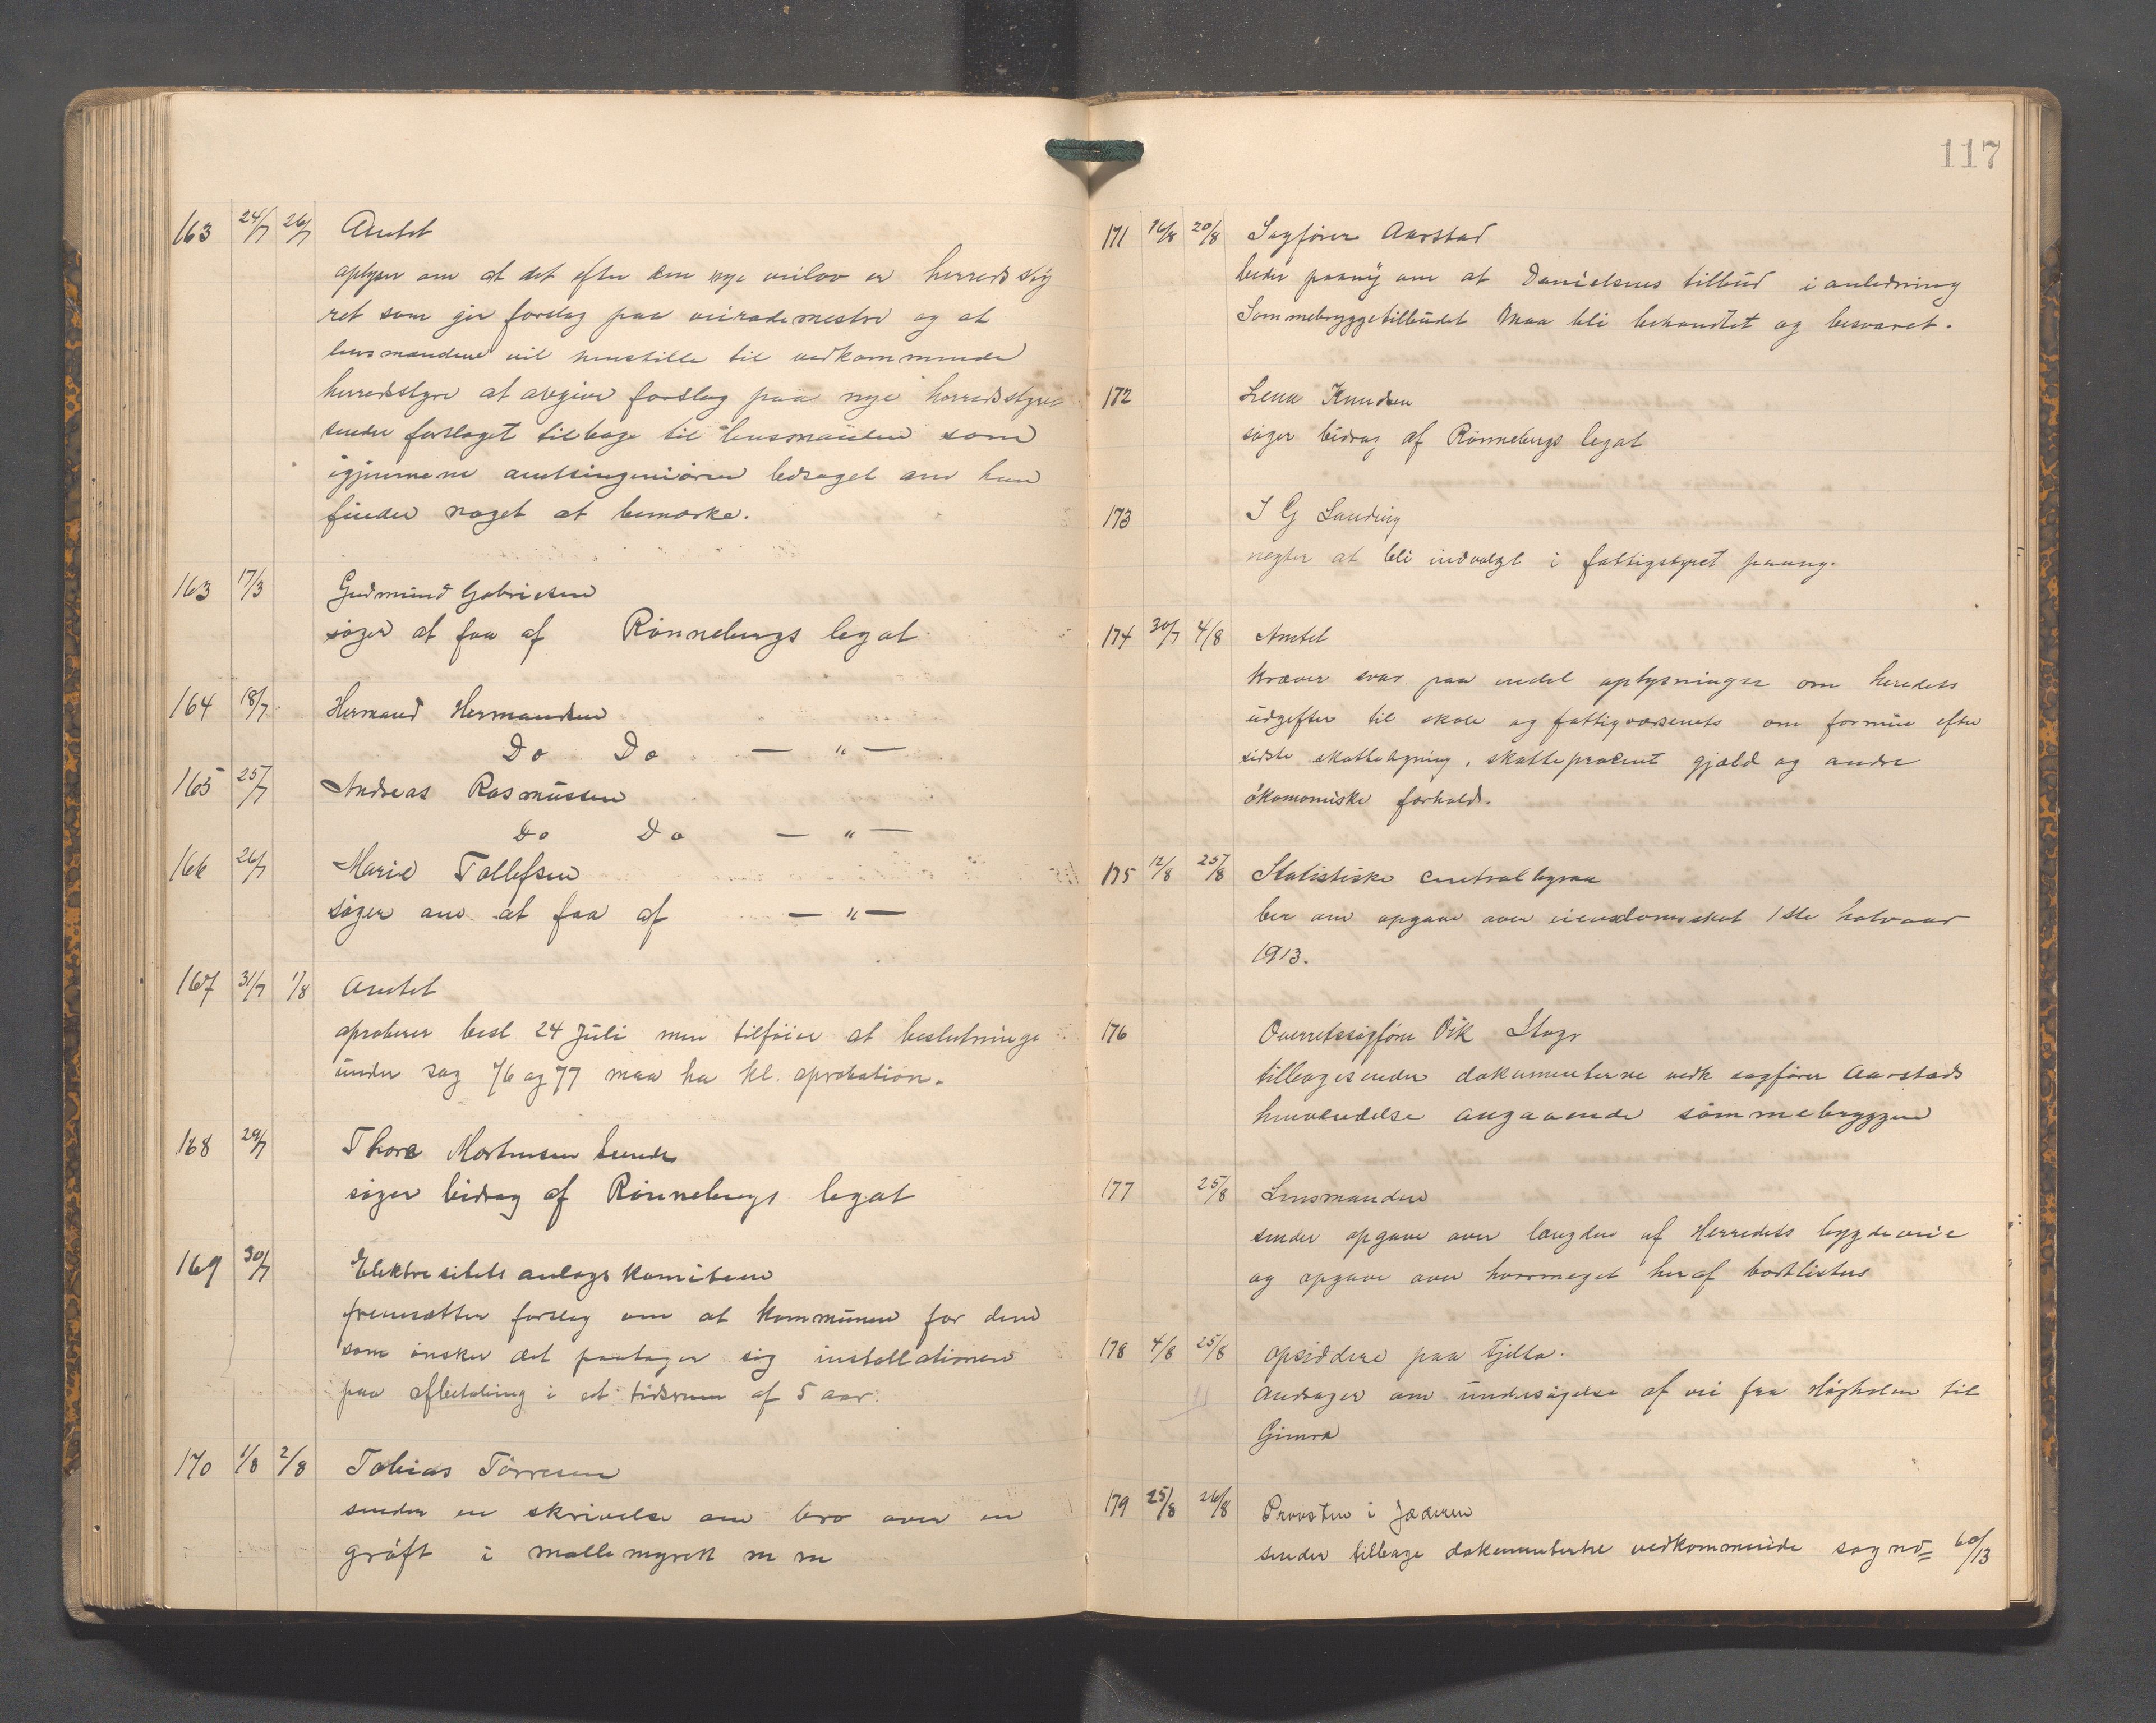 163 24/7 26/7 Amtet
oplyser om at det efter den nye veilov er herredssty
ret som gir forslag paa veirodemestre og at
lensmændene vil henstille til vedkommende
herredsstyre at avgive forslag paa nye herredsstyre
sender forslaget tilbage til lensmanden som
igjennem amtsingeniøren ledsaget om han
finder noget at bemærke.
163 17/3 Gudmund Gabrielsen
søger at faa af Rønnebergs legat
164 18/7 Hermand Hermandsen
Do Do — " —
165 25/7 Andreas Rasmussen
Do Do — " —
166 26/7 Marie Tollefsen
søger om at faa af — " —
167 31/7 1/8 Amtet
aproberer besl 24 Juli men tilføier at beslutninge
under sag 76 og 77 maa ha kl. aprobation.
168 29/7 Thore Mortensen Sunde
søger bidrag af Rønnebergs legat
169 30/7 Elektresitets anlægs Komiteen
fremsætter forslag om at Kommunen for dem
som ønsker det paatager sig installationen
paa afbetaling i et tidsrum af 5 aar.
170 1/8 2/8 Tobias Tørresen
sender en skrivelse om bro over en
grøft i mollemyren m m
117
171 16/8 20/8 Sagfører Aarstad
beder paany om at Danielsens tilbud i anledning
Sømmebryggetilbudet maa bli behandlet og besvaret.
172 Lena Knudsen
søger bidrag af Rønnebergs legat
173 I G Sanding
negter at bli indvalgt i fattigstyret paany.
174 30/7 4/8 Amtet
kræver svar paa endel oplysninger om heredets
udgifter til skole og fattigvæsenets om formue efter
sidste skatteligning, skatteprocent gjæld og andre
økonomiske forhold.
175 12/8 25/8 Statistiske centralbyraa
ber om opgave over eiendomsskat 1ste halvaar
1913.
176 Overretssagfører Vik Stvgr
tilbagesender dokumenterne vedk sagfører Aarstads
henvendelse angaaende sømmebryggen
177 25/8 Lensmanden
sender opgave over længden af Herredets bygdeveie
og opgave over hvormeget heraf bortlistes
178 4/8 25/8 Opsiddere paa Tjelta.
Andrager om undersøgelse af vei fra Høgholen til
Gimra
179 25/8 26/8 Provsten i Jæderen
sender tilbage dokumenterne vedkommende sag no 60/13